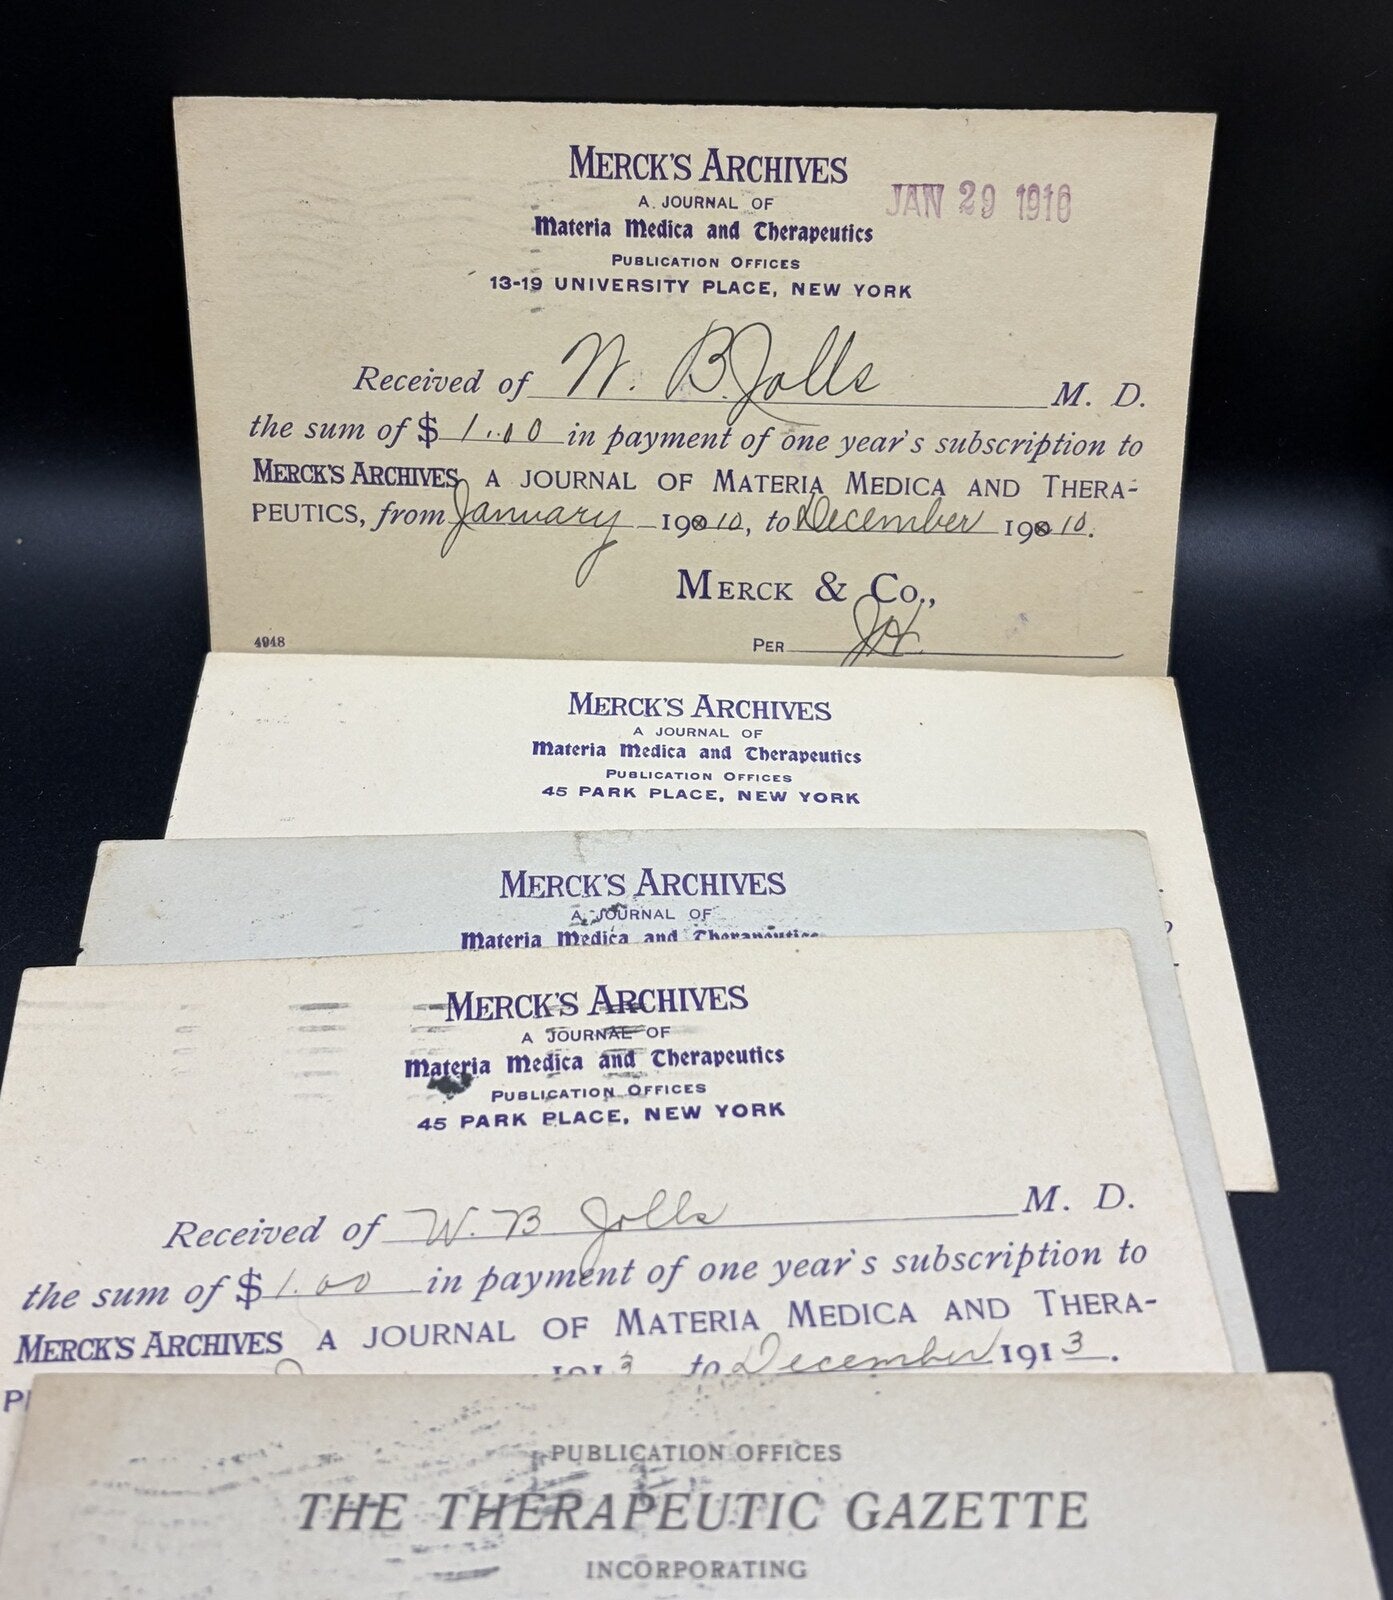 MERCK'S ARCHIVES
A JOURNAL OF
JAN 29 1910
Materia Medica and Therapeutics
PUBLICATION OFFICES
13-19 UNIVERSITY PLACE, NEW YORK
Received of W. B. Jolls M. D.
the sum of $ 1.00 in payment of one year's subscription to
MERCK'S ARCHIVES, A JOURNAL OF MATERIA MEDICA AND THERA-
PEUTICS, from January 190 10, to December 190 10.
MERCK & CO.,
4948
PER JH.
MERCK'S ARCHIVES
A JOURNAL OF
Materia Medica and Therapeutics
PUBLICATION OFFICES
45 PARK PLACE, NEW YORK
MERCK'S ARCHIVES
A JOURNAL OF
Materia Medica and Therapeutics
MERCK'S ARCHIVES
A JOURNAL OF
Materia Medica and Therapeutics
PUBLICATION OFFICES
45 PARK PLACE, NEW YORK
Received of W. B Jolls M. D.
the sum of $ 1.00 in payment of one year's subscription to
MERCK'S ARCHIVES A JOURNAL OF MATERIA MEDICA AND THERA-
P 1913 to December 1913.
PUBLICATION OFFICES
THE THERAPEUTIC GAZETTE
INCORPORATING